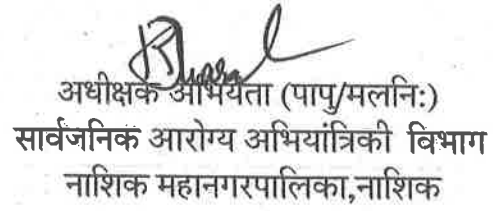 अधीक्षक अभियंता (पापु/मलनि:)
सार्वजनिक आरोग्य अभियांत्रिकी विभाग
नाशिक महानगरपालिका,नाशिक